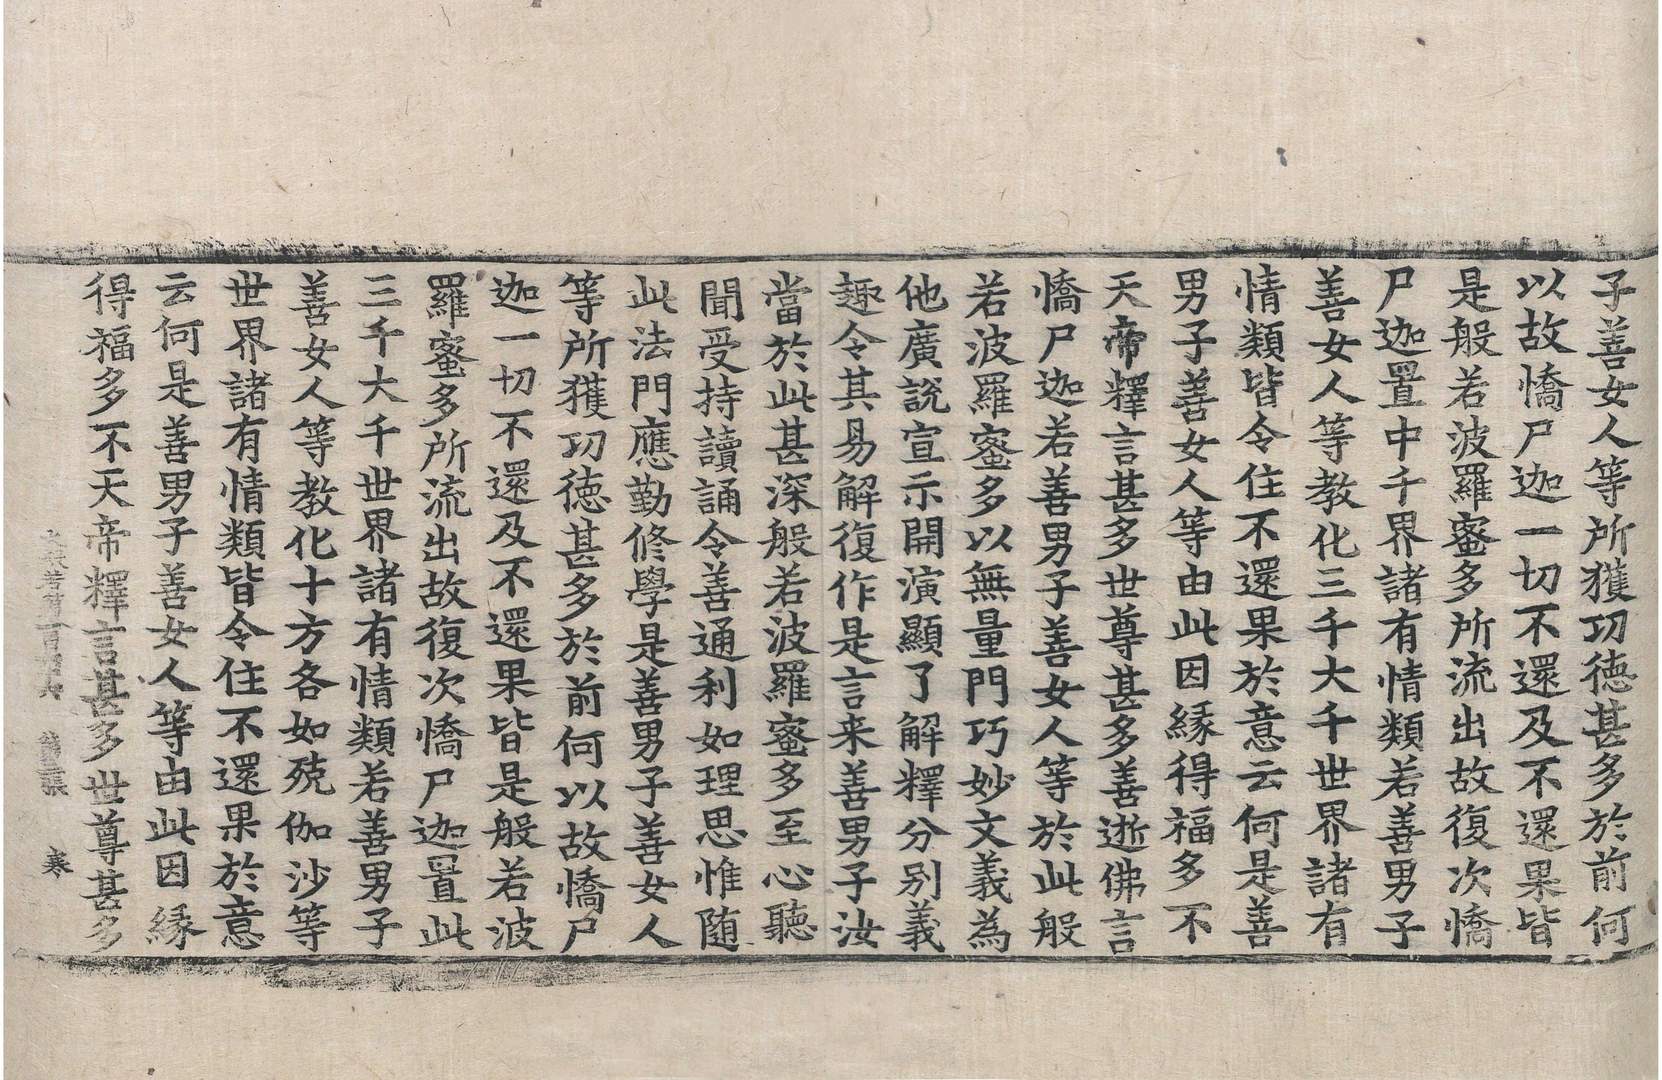 子善女人等所獲功德甚多於前何
以故憍尸迦一切不還及不還果皆
是般若波羅蜜多所流出故復次憍
尸迦置中千界諸有情類若善男子
善女人等教化三千大千世界諸有
情類皆令住不還果於意云何是善
男子善女人等由此因緣得福多不
天帝釋言甚多世尊甚多善逝佛言
憍尸迦若善男子善女人等於此般
若波羅蜜多以無量門巧妙文義為
他廣說宣示開演顯了解釋分別義
趣令其易解復作是言来善男子汝
當於此甚深般若波羅蜜多至心聽
聞受持讀誦令善通利如理思惟随
此法門應勤修學是善男子善女人
等所獲功德甚多於前何以故憍尸
迦一切不還及不還果皆是般若波
羅蜜多所流出故復次憍尸迦置此
三千大千世界諸有情類若善男子
善女人等教化十方各如殑伽沙等
世界諸有情類皆令住不還果於意
云何是善男子善女人等由此因緣
得福多不天帝釋言甚多世尊甚多
寒